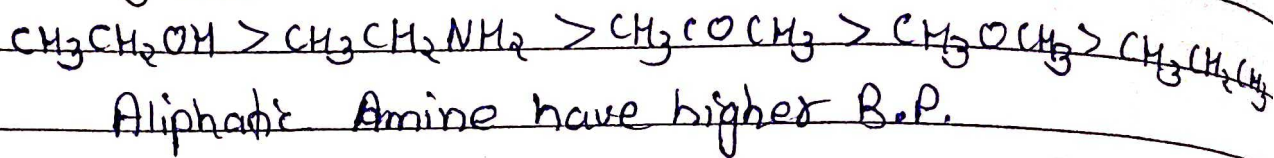 CH₃CH₂OH > CH₃CH₂NH₂ > CH₃COCH₃ > CH₃OCH₃ > CH₃CH₂CH₃
Aliphatic Amine have higher B.P.